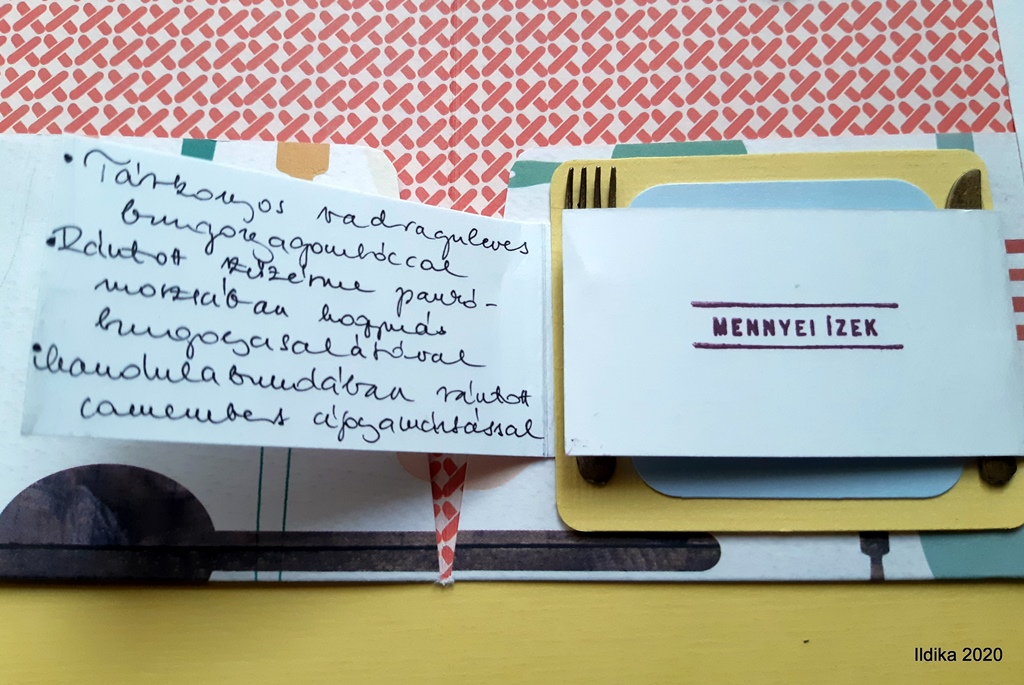 • Tárkonyos vadraguleves
burgonyagombóccal
• Rántott szűzérme panko-
morzsában hagymás
burgonyasalátával
• Mandulabundában rántott
camembert áfonyamártással
MENNYEI ÍZEK
Ildika 2020